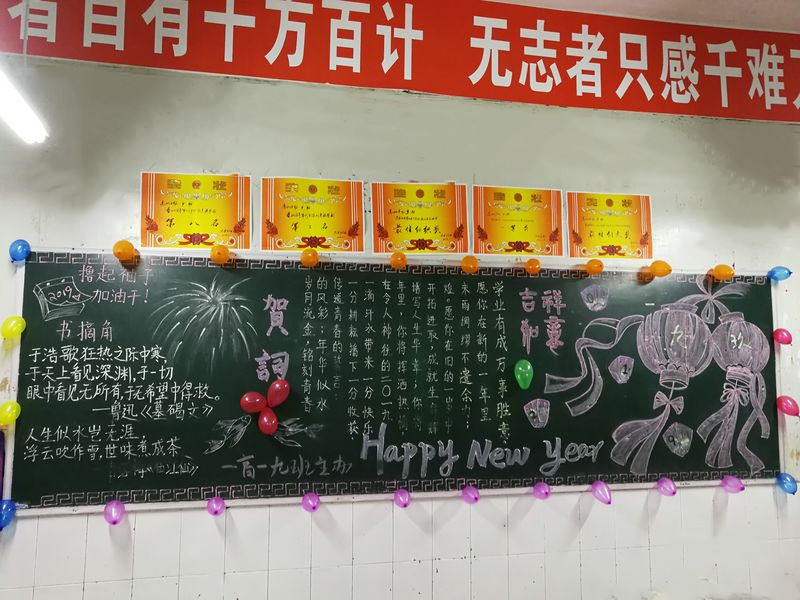 者自有十方百计 无志者只感千难
奖状
第八名
奖状
奖状
奖状
奖状
2019
撸起袖子
加油干!
书摘角
于浩歌狂热之际中寒,
于天上看见深渊,于一切
眼中看见无所有,于无希望中得救。
——鲁迅《墓碣文》
人生似水岂无涯,
浮云吹作雪,世味煮成茶
賀詞
学业有成万事胜意
愿你在新的一年里
未雨绸缪不遗余力;
难。愿你在旧的
开拓进取,成就生
谱写人生华章;你
年里,你将挥洒热
在令人神往的二〇一九
一滴汗水带来一分快乐
一分耕耘播下一分收获
传递青春的
的风彩;年华似水
岁月流金,铭刻青春
吉祥如意
Happy New Year
一百一九班主办